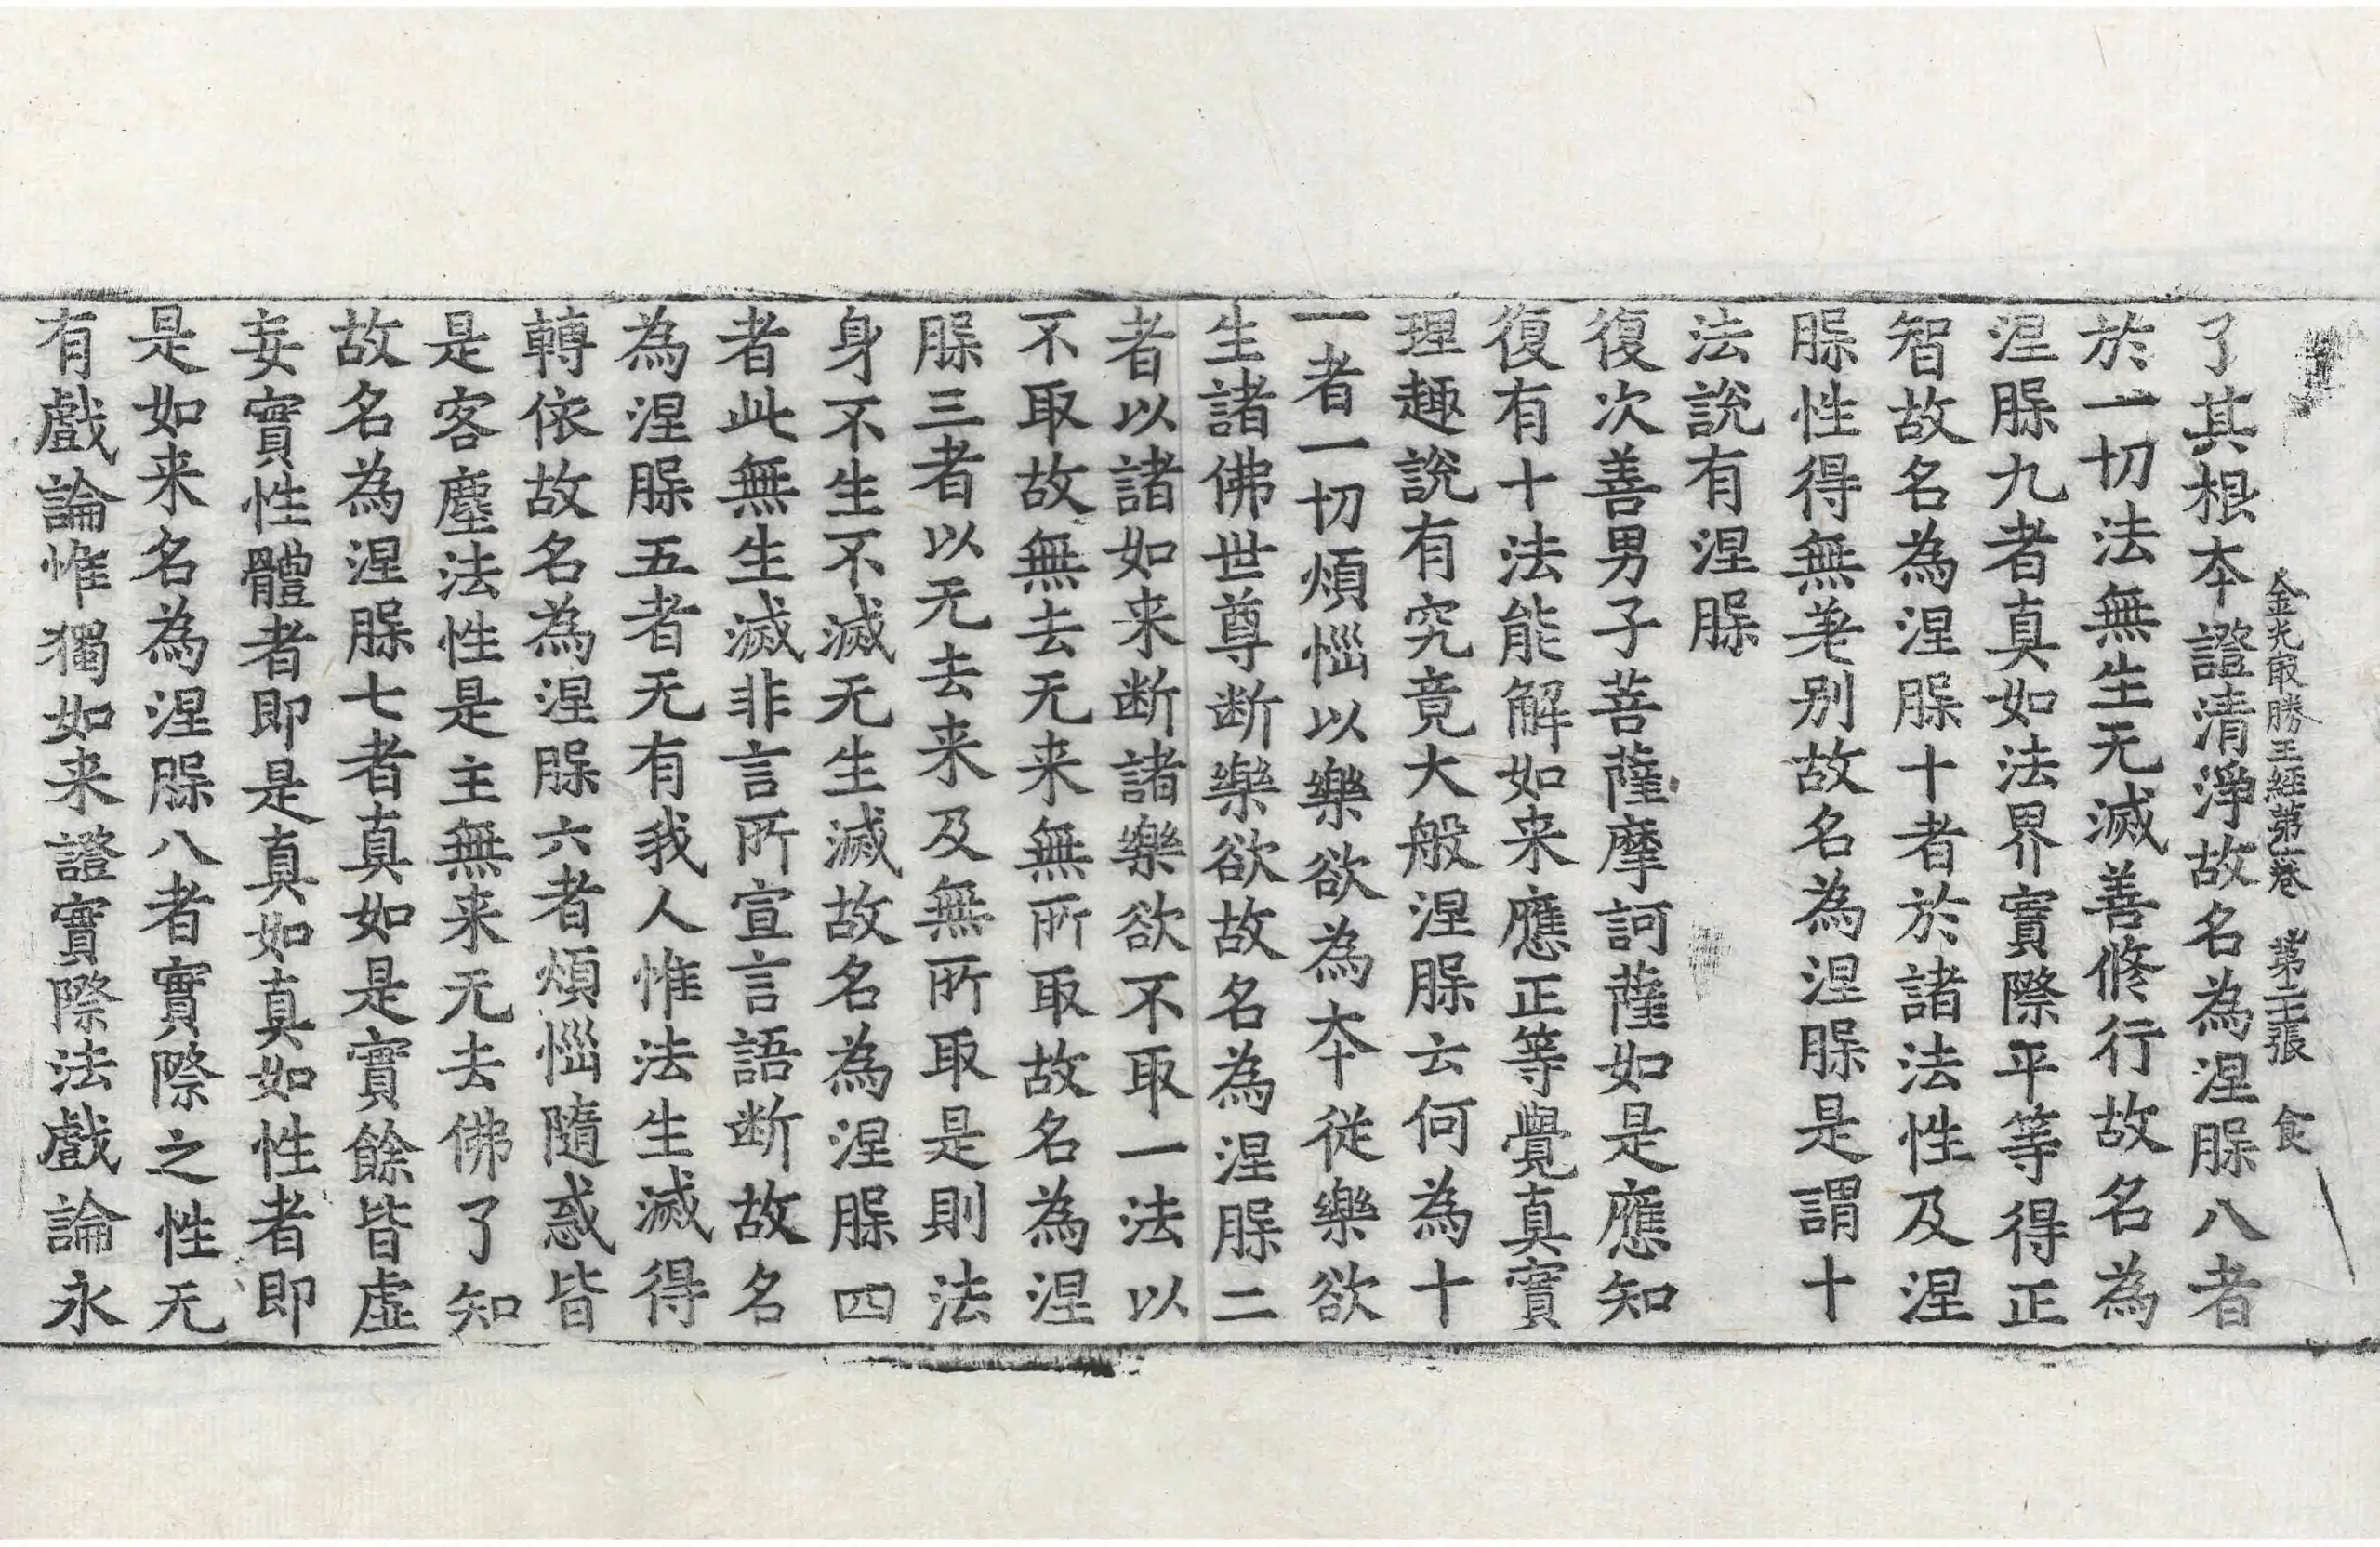 金光㝡勝王經第一卷 第十二張 食
了其根本證清淨故名為涅槃八者
於一切法無生无滅善修行故名為
涅槃九者真如法界實際平等得正
智故名為涅槃十者於諸法性及涅
槃性得無差别故名為涅槃是謂十
法說有涅槃
復次善男子菩薩摩訶薩如是應知
復有十法能解如来應正等覺真實
理趣說有究竟大般涅槃云何為十
一者一切煩惱以樂欲為本從樂欲
生諸佛世尊断樂欲故名為涅槃二
者以諸如来断諸樂欲不取一法以
不取故無去无来無所取故名為涅
槃三者以无去来及無所取是則法
身不生不滅无生滅故名為涅槃四
者此無生滅非言所宣言語断故名
為涅槃五者无有我人惟法生滅得
轉依故名為涅槃六者煩惱隨惑皆
是客塵法性是主無来无去佛了知
故名為涅槃七者真如是實餘皆虛
妄實性體者即是真如真如性者即
是如来名為涅槃八者實際之性无
有戲論惟獨如来證實際法戲論永